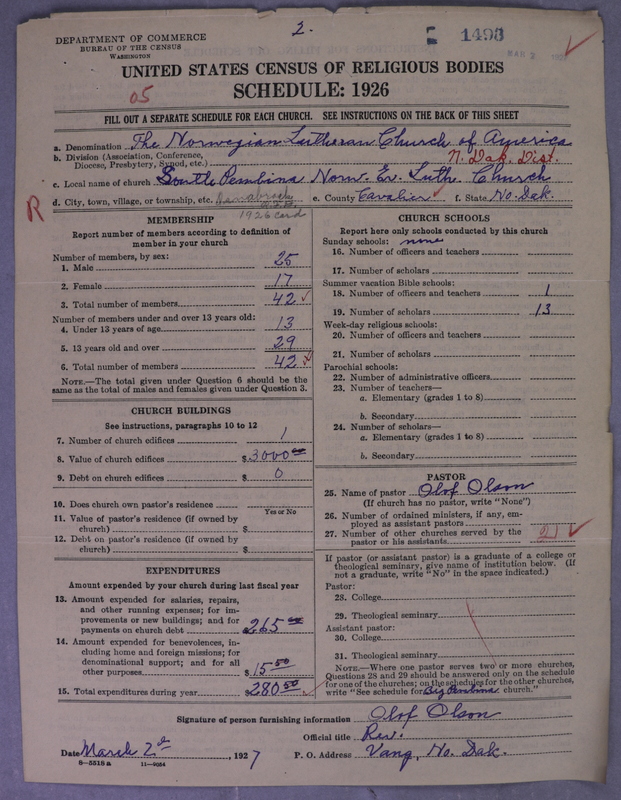 DEPARTMENT OF COMMERCE
BUREAU OF THE CENSUS
WASHINGTON
2.
1498
MAR 2 192
UNITED STATES CENSUS OF RELIGIOUS BODIES
05
SCHEDULE: 1926
FILL OUT A SEPARATE SCHEDULE FOR EACH CHURCH. SEE INSTRUCTIONS ON THE BACK OF THIS SHEET
a. Denomination The Norwegian Lutheran Church of America
b. Division (Association, Conference, Diocese, Presbytery, Synod, etc.) N. Dak. Dist.
c. Local name of church South Pembina Norw. Ev. Luth. Church
R
d. City, town, village, or township, etc. e. County Cavalier f. State No. Dak.
1926 card
MEMBERSHIP
Report number of members according to definition of member in your church
Number of members, by sex:
1. Male 25
2. Female 17
3. Total number of members 42
Number of members under and over 13 years old:
4. Under 13 years of age 13
5. 13 years old and over 29
6. Total number of members 42
NOTE.—The total given under Question 6 should be the same as the total of males and females given under Question 3.
CHURCH BUILDINGS
See instructions, paragraphs 10 to 12
7. Number of church edifices 1
8. Value of church edifices $3000 00
9. Debt on church edifices $ 0
10. Does church own pastor's residence
Yes or No
11. Value of pastor's residence (if owned by church) $
12. Debt on pastor's residence (if owned by church) $
EXPENDITURES
Amount expended by your church during last fiscal year
13. Amount expended for salaries, repairs, and other running expenses; for improvements or new buildings; and for payments on church debt $265 00
14. Amount expended for benevolences, including home and foreign missions; for denominational support; and for all other purposes $15 50
15. Total expenditures during year $280 50
CHURCH SCHOOLS
Report here only schools conducted by this church
Sunday schools: none
16. Number of officers and teachers
17. Number of scholars
Summer vacation Bible schools:
18. Number of officers and teachers 1
19. Number of scholars 13
Week-day religious schools:
20. Number of officers and teachers
21. Number of scholars
Parochial schools:
22. Number of administrative officers
23. Number of teachers—
a. Elementary (grades 1 to 8)
b. Secondary
24. Number of scholars—
a. Elementary (grades 1 to 8)
b. Secondary
PASTOR
25. Name of pastor Olof Olson
(If church has no pastor, write "None")
26. Number of ordained ministers, if any, employed as assistant pastors
27. Number of other churches served by the pastor or his assistants 2
If pastor (or assistant pastor) is a graduate of a college or theological seminary, give name of institution below. (If not a graduate, write "No" in the space indicated.)
Pastor:
28. College
29. Theological seminary
Assistant pastor:
30. College
31. Theological seminary
NOTE.—Where one pastor serves two or more churches, Questions 28 and 29 should be answered only on the schedule for one of the churches; on the schedules for the other churches, write "See schedule for Big Pembina church."
Signature of person furnishing information Olof Olson
Official title Rev.
Date March 2nd, 1927 P. O. Address Vang, No. Dak.
8—5518 a 11—9054